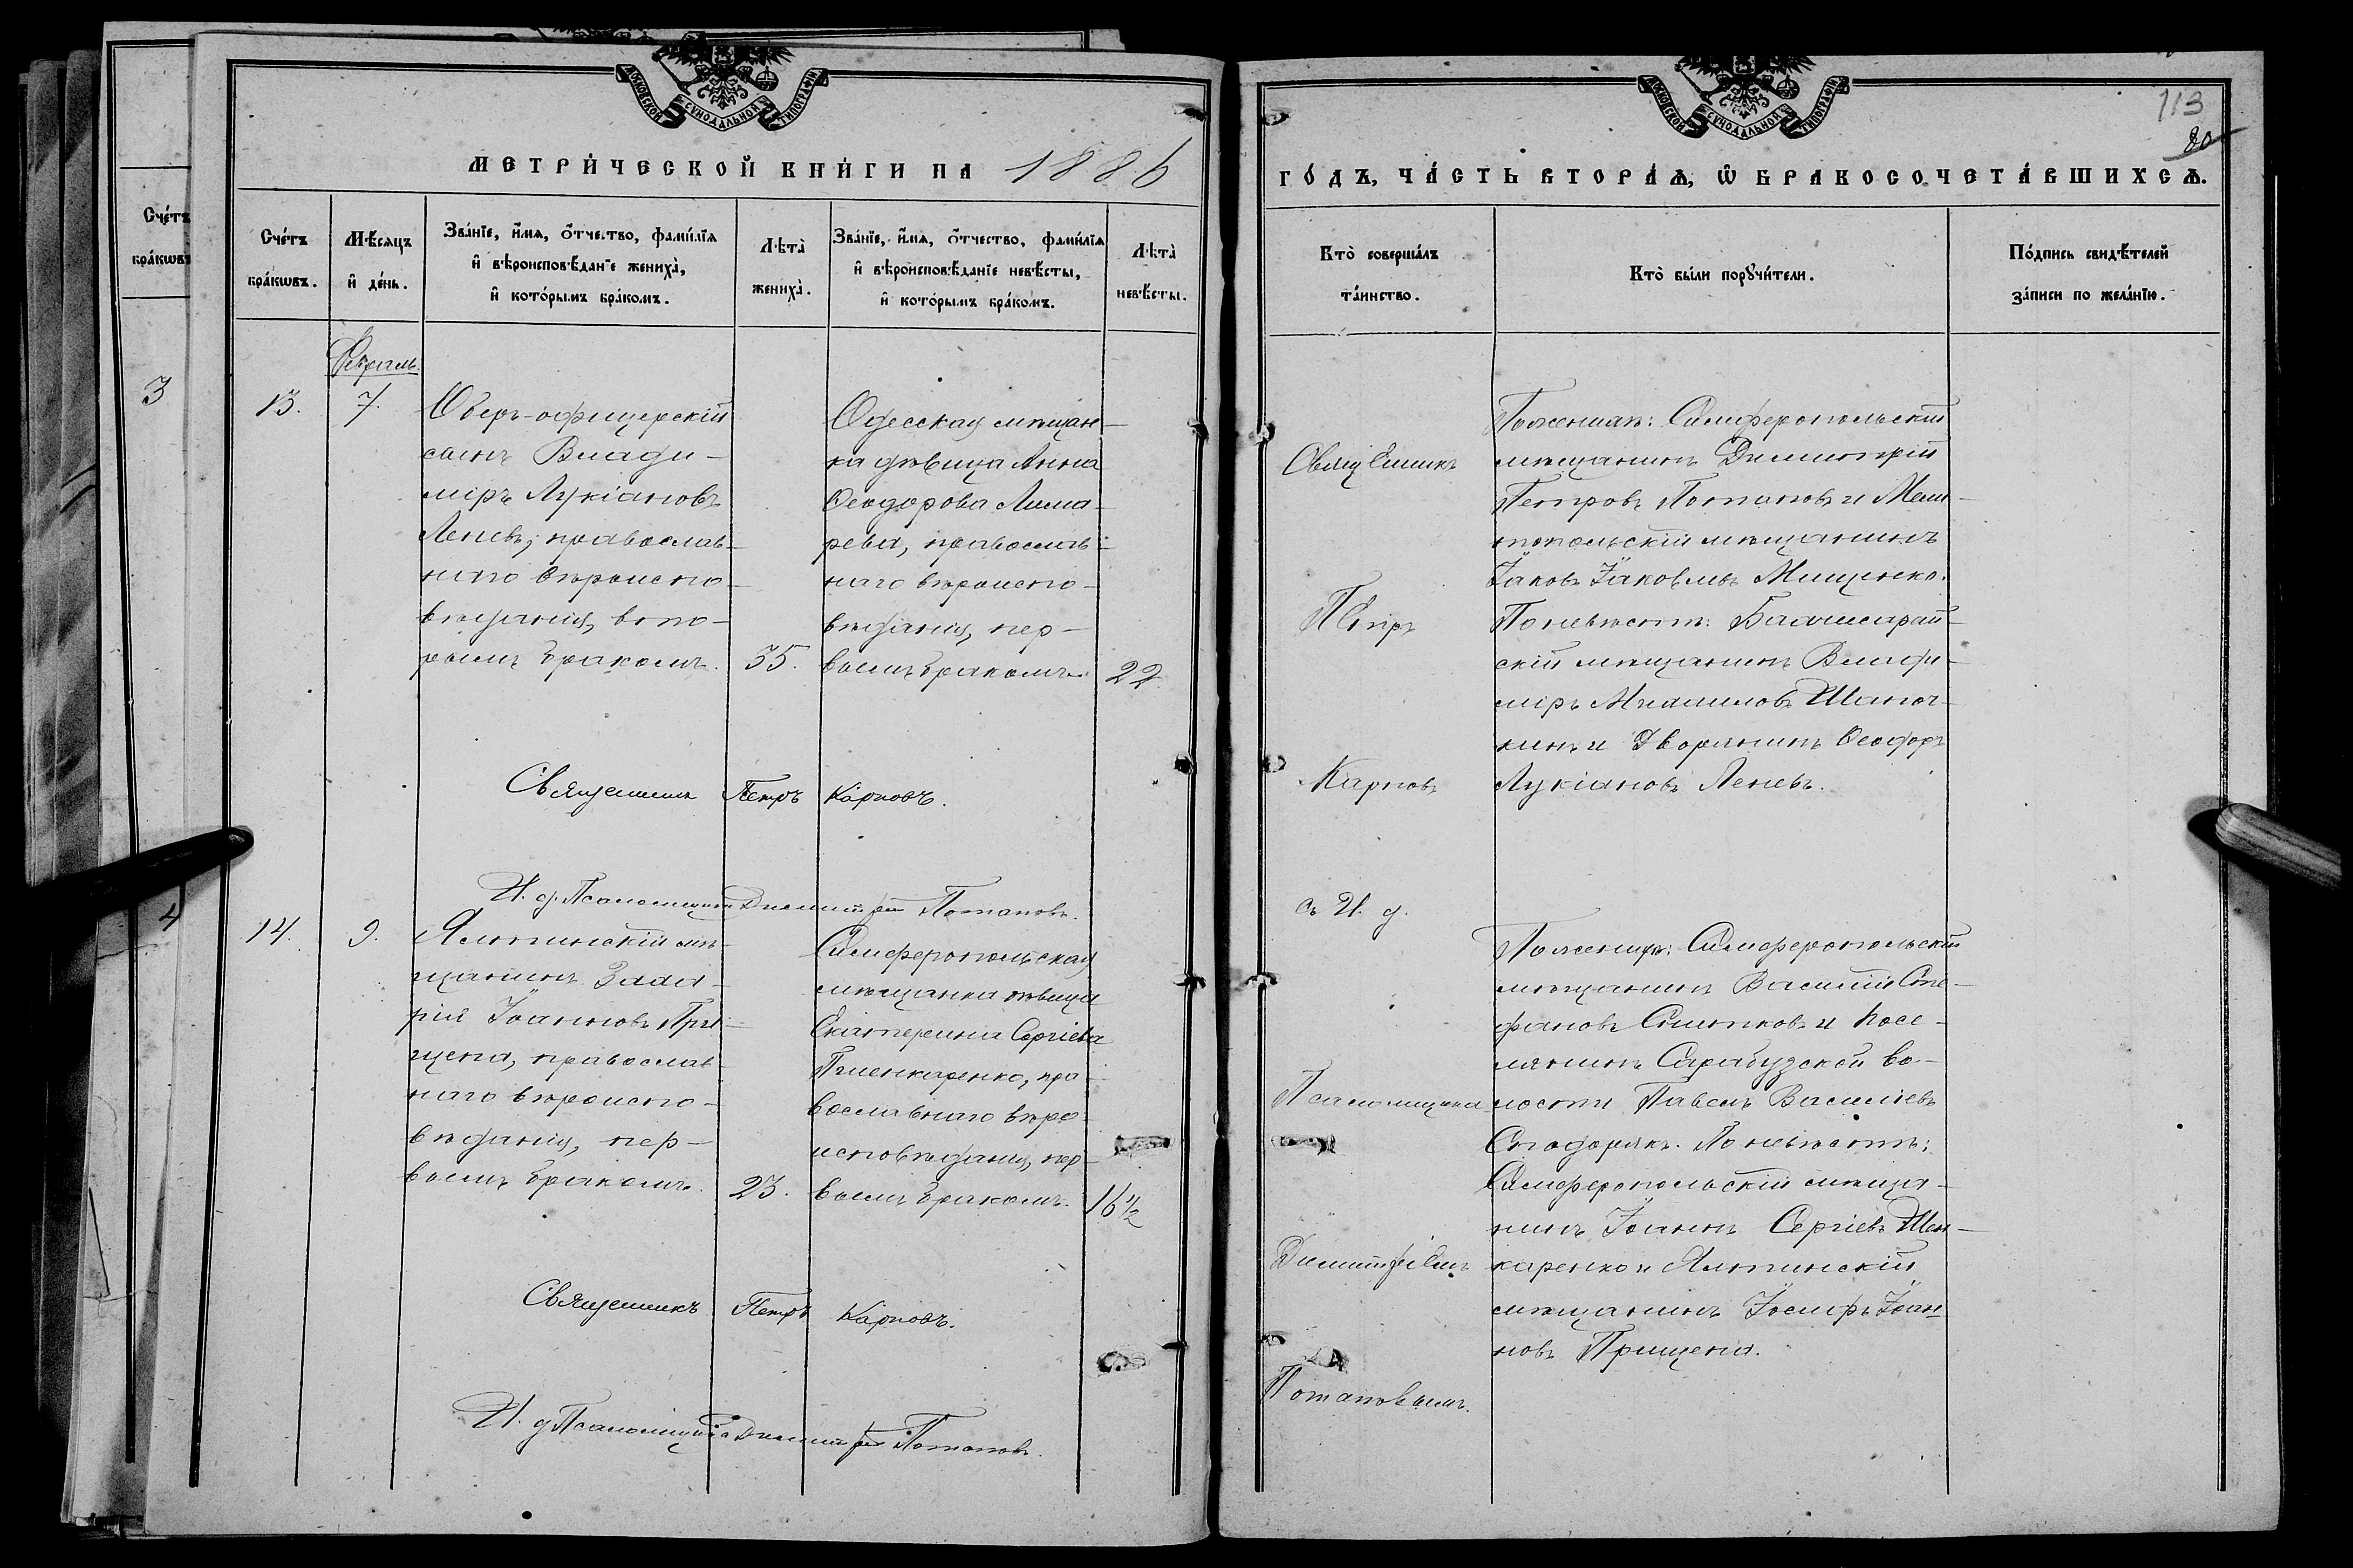 МОСКОВСКОЙ СѴНОДАЛЬНОЙ ТИПОГРАФІИ
МЕТРИ́ЧЕСКОЙ КНИ́ГИ НА 1886
Сче́тъ бра́кωвъ.
Мѣ́сяцъ и҆ де́нь.
Зва́нїе, и҆́мя, ѻ҆́тчество, фами́лїя
и҆ вѣроисповѣ́данїе жениха̀,
и҆ кото́рымъ бра́комъ.
Лѣта̀ жениха̀.
Зва́нїе, и҆́мя, ѻ҆́тчество, фами́лїя
и҆ вѣроисповѣ́данїе невѣ́сты,
и҆ кото́рымъ бра́комъ.
Лѣта̀ невѣ́сты.
Сче́тъ
бра́кωвъ
3
4
Февраль.
13.
7.
Оберъ-офицерскій
сынъ Влади-
міръ Лукіановъ
Леневъ, православ-
наго вѣроиспо-
вѣданія, вто-
рымъ бракомъ.
35.
Одесская мѣщан-
ка дѣвица Анна
Ѳеодорова Лима-
рева, православ-
наго вѣроиспо-
вѣданія, пер-
вымъ бракомъ.
22.
Священникъ Петръ Карповъ.
И. д. Псаломщика Димитрій Потаповъ.
14.
9.
Ялтинскій мѣ-
щанинъ Заха-
рій Іоанновъ При-
щепа, православ-
наго вѣроиспо-
вѣданія, пер-
вымъ бракомъ.
23.
Симферопольская
мѣщанка дѣвица
Екатерина Сергіева
православнаго вѣро-
исповѣданія, пер-
вымъ бракомъ.
16 ½
Священникъ Петръ Карповъ.
И. д. Псаломщика Димитрій Потаповъ.
МОСКОВСКОЙ СѴНОДАЛЬНОЙ ТИПОГРАФІИ
113
80
ГО́ДЪ, ЧА́СТЬ ВТОРА́Ѧ, Ѽ БРАКОСОЧЕТА́ВШИХСѦ.
Кто̀ соверша́лъ
та́инство.
Кто̀ бы́ли порꙋчи́тели.
По́дпись свидѣ́телей
за́писи по жела́нїю.
Священникъ
Петръ
Карповъ
съ И. д.
Псаломщика
Димитріемъ
Потаповымъ.
По женихѣ: Симферопольскій
мѣщанинъ Димитрій
Петровъ Потаповъ и Мели-
топольскій мѣщанинъ
Іаковъ Іаковлевъ Мищенко.
По невѣстѣ: Бахчисарай-
скій мѣщанинъ Влади-
міръ Михаиловъ Шапоч-
кинъ и Дворянинъ Ѳеодоръ
Лукіановъ Леневъ.
По женихѣ: Симферопольскій
мѣщанинъ Василій Сте-
фановъ и посе-
лянинъ Сарабузской во-
лости Павелъ Василіевъ
По невѣстѣ:
Симферопольскій мѣща-
нинъ Іоаннъ Сергіевъ Шен-
каренко и Ялтинскій
мѣщанинъ Іосифъ Іоан-
новъ Прищепа.